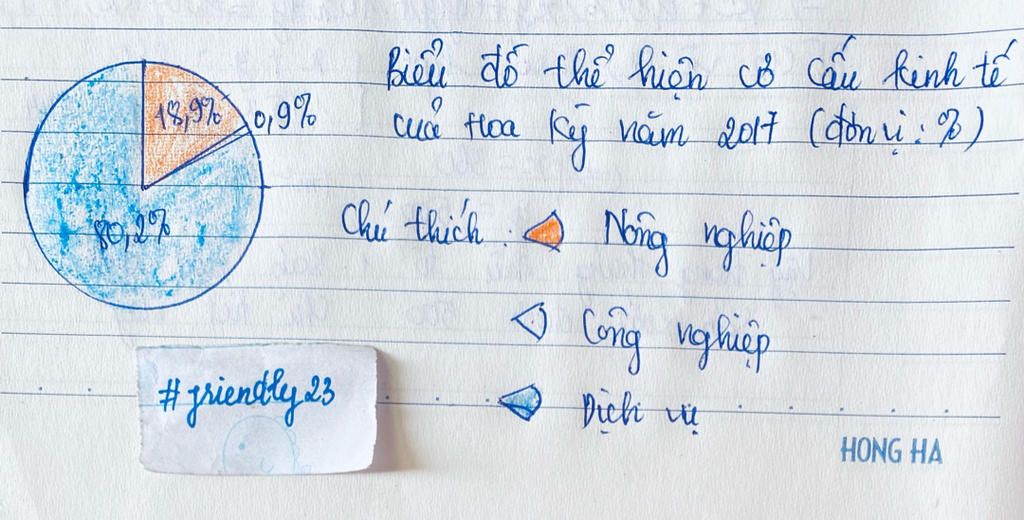 Biểu đồ thể hiện cơ cấu kinh tế
của Hoa Kỳ năm 2017 (đơn vị : %)
18,9%
0,9%
80,2%
Chú thích : Nông nghiệp
Công nghiệp
Dịch vụ
#friendly23
HONG HA